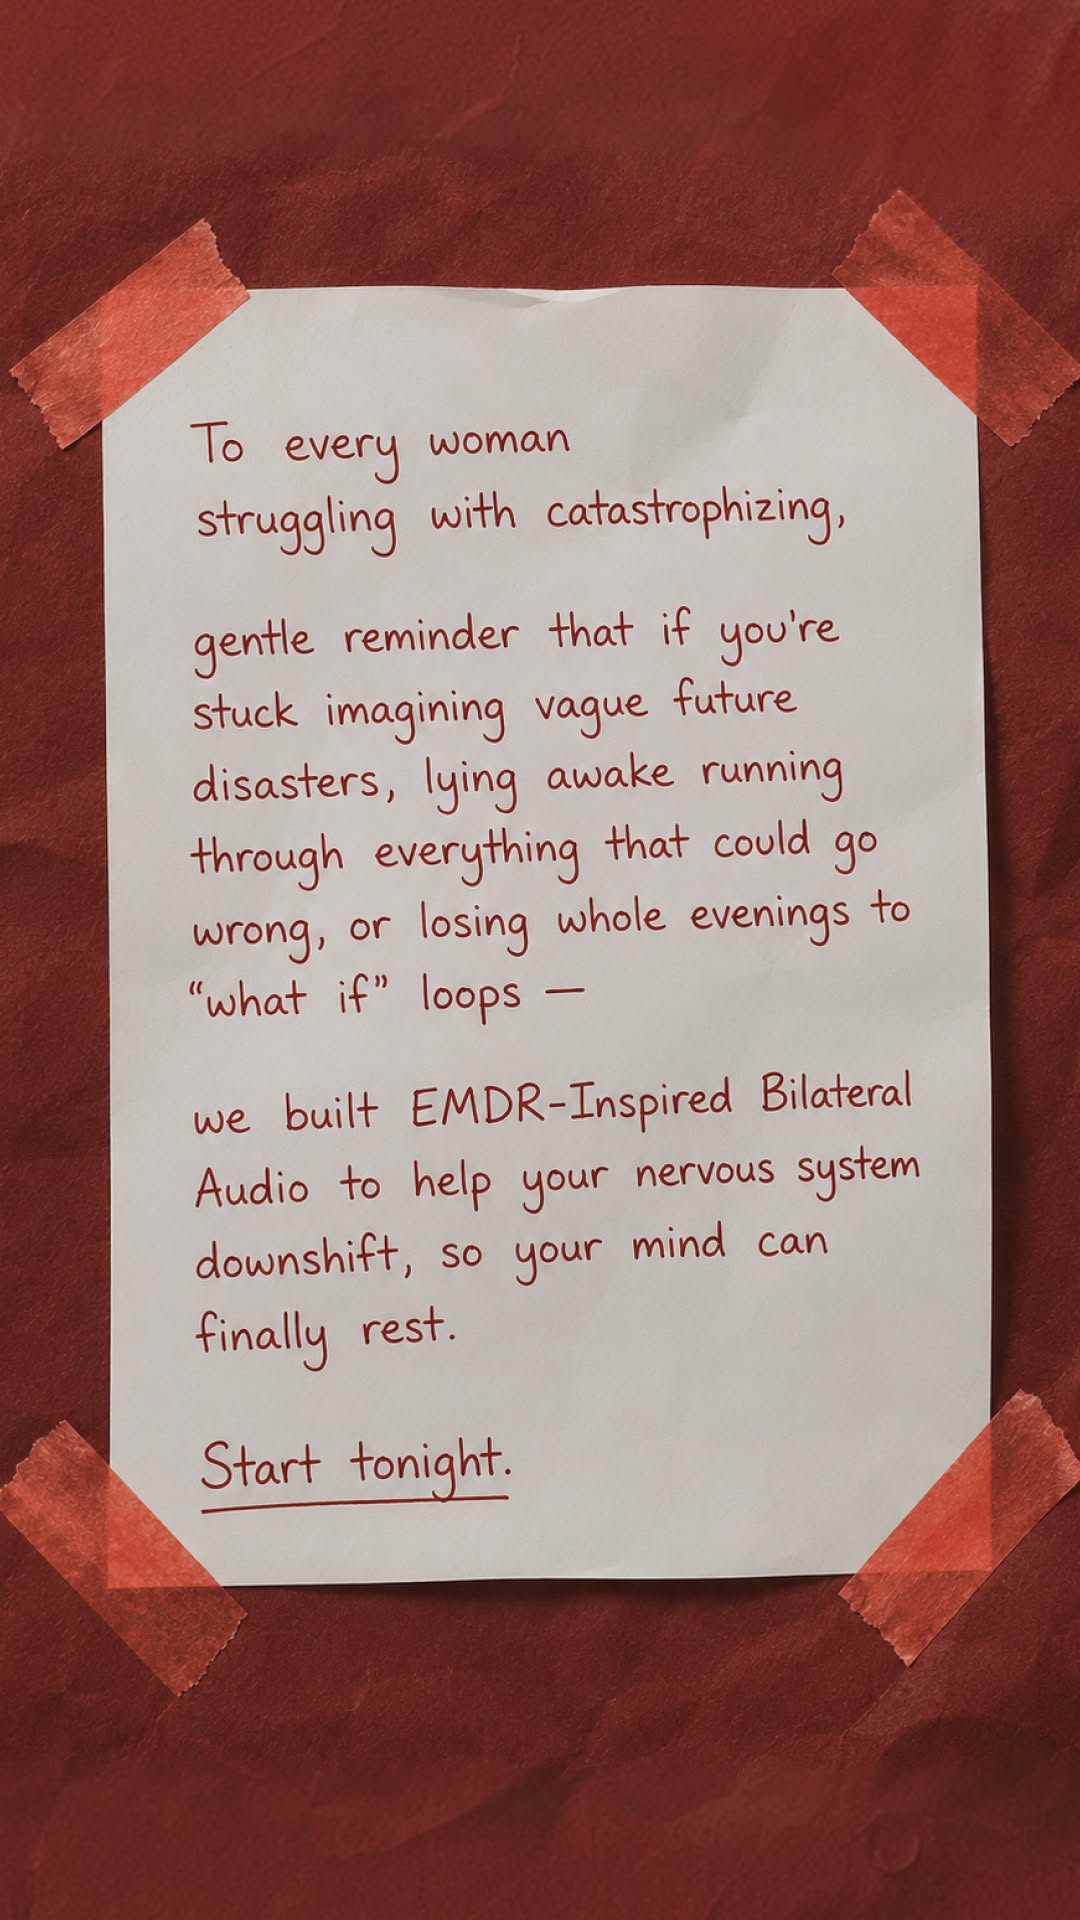 To every woman
struggling with catastrophizing,
gentle reminder that if you're
stuck imagining vague future
disasters, lying awake running
through everything that could go
wrong, or losing whole evenings to
“what if” loops —
we built EMDR-Inspired Bilateral
Audio to help your nervous system
downshift, so your mind can
finally rest.
Start tonight.